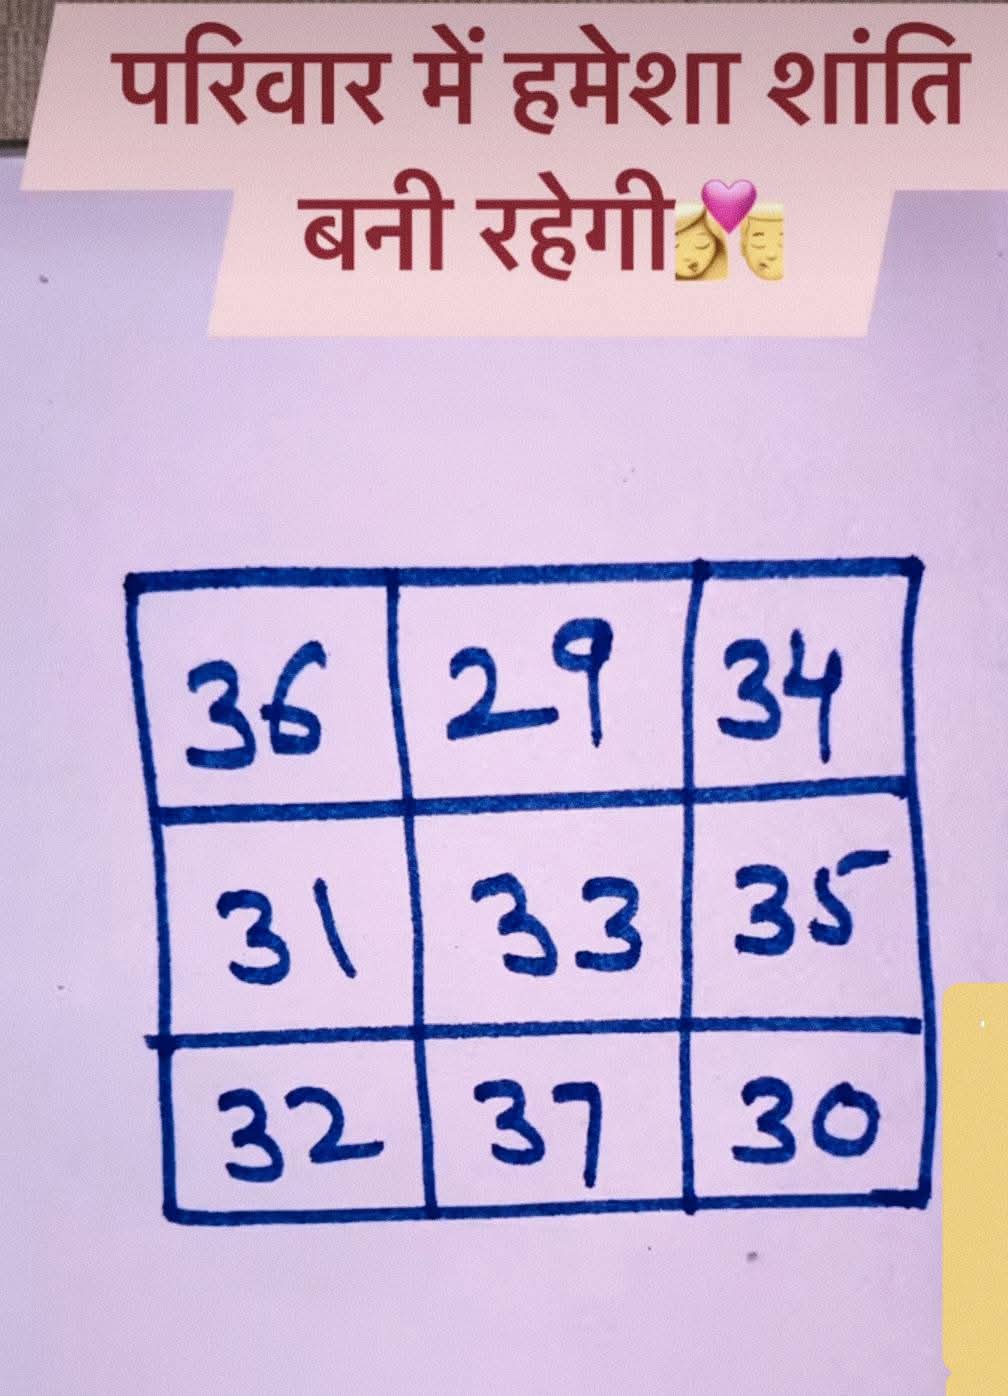 परिवार में हमेशा शांति
बनी रहेगी💏
36 29 34
31 33 35
32 37 30